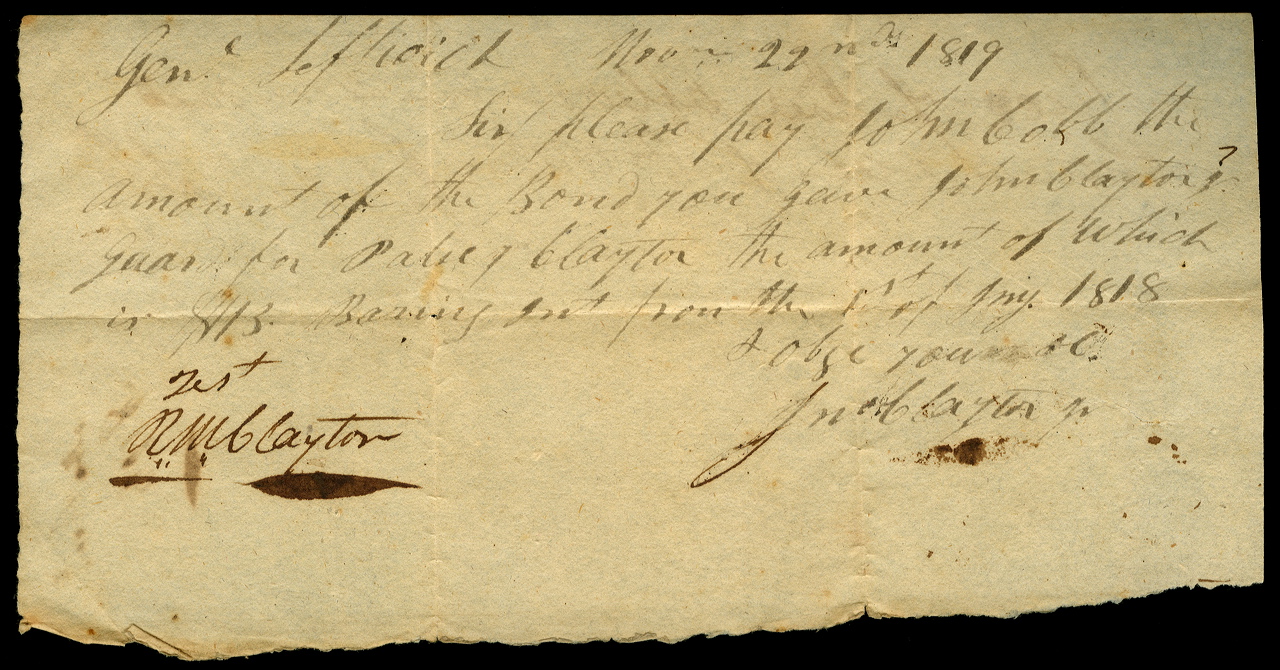 Genl Leftwich Nov 22nd 1819
Sir please pay John Cobb the
amount of the Bond you gave John Claytor jr
Guard for Patsey Claytor the amount of which
is $13. Baring Int from the 1st of Jny. 1818
& oblge yours &C
Jno Claytor jr
Test
R M Claytor